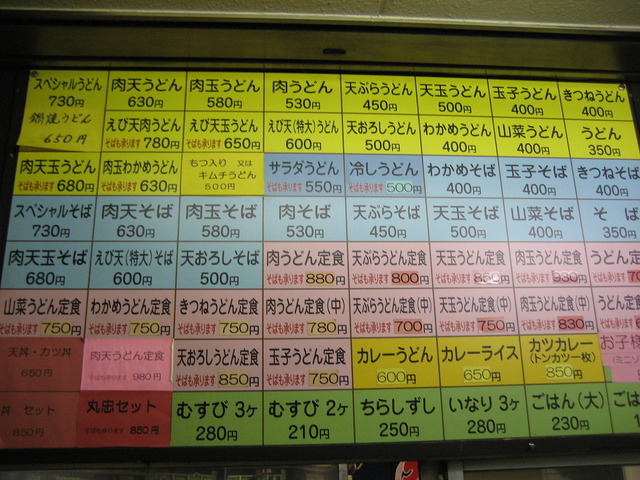 スペシャルうどん 肉天うどん 肉玉うどん 肉うどん 天ぷらうどん 天玉うどん 玉子うどん きつねうどん
730円 630円 580円 530円 450円 500円 400円 400円
鍋焼うどん えび天肉うどん えび天玉うどん えび天(特大)うどん 天おろしうどん わかめうどん 山菜うどん うどん
650円 そばも承ります 780円 そばも承ります 650円 600円 500円 400円 400円 350円
肉天玉うどん 肉玉わかめうどん もつ入り 又は サラダうどん 冷しうどん わかめそば 玉子そば きつねそば
キムチうどん
そばも承ります 680円 そばも承ります 630円 500円 そばも承ります 550円 そばも承ります 500円 400円 400円 400円
スペシャルそば 肉天そば 肉玉そば 肉そば 天ぷらそば 天玉そば 山菜そば そ ば
730円 630円 580円 530円 450円 500円 400円 350円
肉天玉そば えび天(特大)そば 天おろしそば 肉うどん定食 天ぷらうどん定食 天玉うどん定食 肉玉うどん定食 うどん定
680円 600円 500円 そばも承ります 880円 そばも承ります 800円 そばも承ります そばも承ります そばも
山菜うどん定食 わかめうどん定食 きつねうどん定食 肉うどん定食(中) 天ぷらうどん定食(中) 天玉うどん定食(中) 肉玉うどん定食(中) うどん定
そばも承ります 750円 そばも承ります 750円 そばも承ります 750円 そばも承ります 780円 そばも承ります 700円 そばも承ります 750円 そばも承ります 830円 そばも
天丼・カツ丼 肉天うどん定食 天おろしうどん定食 玉子うどん定食 カレーうどん カレーライス カツカレー お子様
(トンカツ一枚) (ミニ
650円 そばも承ります 980円 そばも承ります 850円 そばも承ります 750円 600円 650円 850円
丼 セット 丸忠セット むすび 3ヶ むすび 2ヶ ちらしずし いなり 3ヶ ごはん(大) ごは
850円 そばも承ります 850円 280円 210円 250円 280円 230円